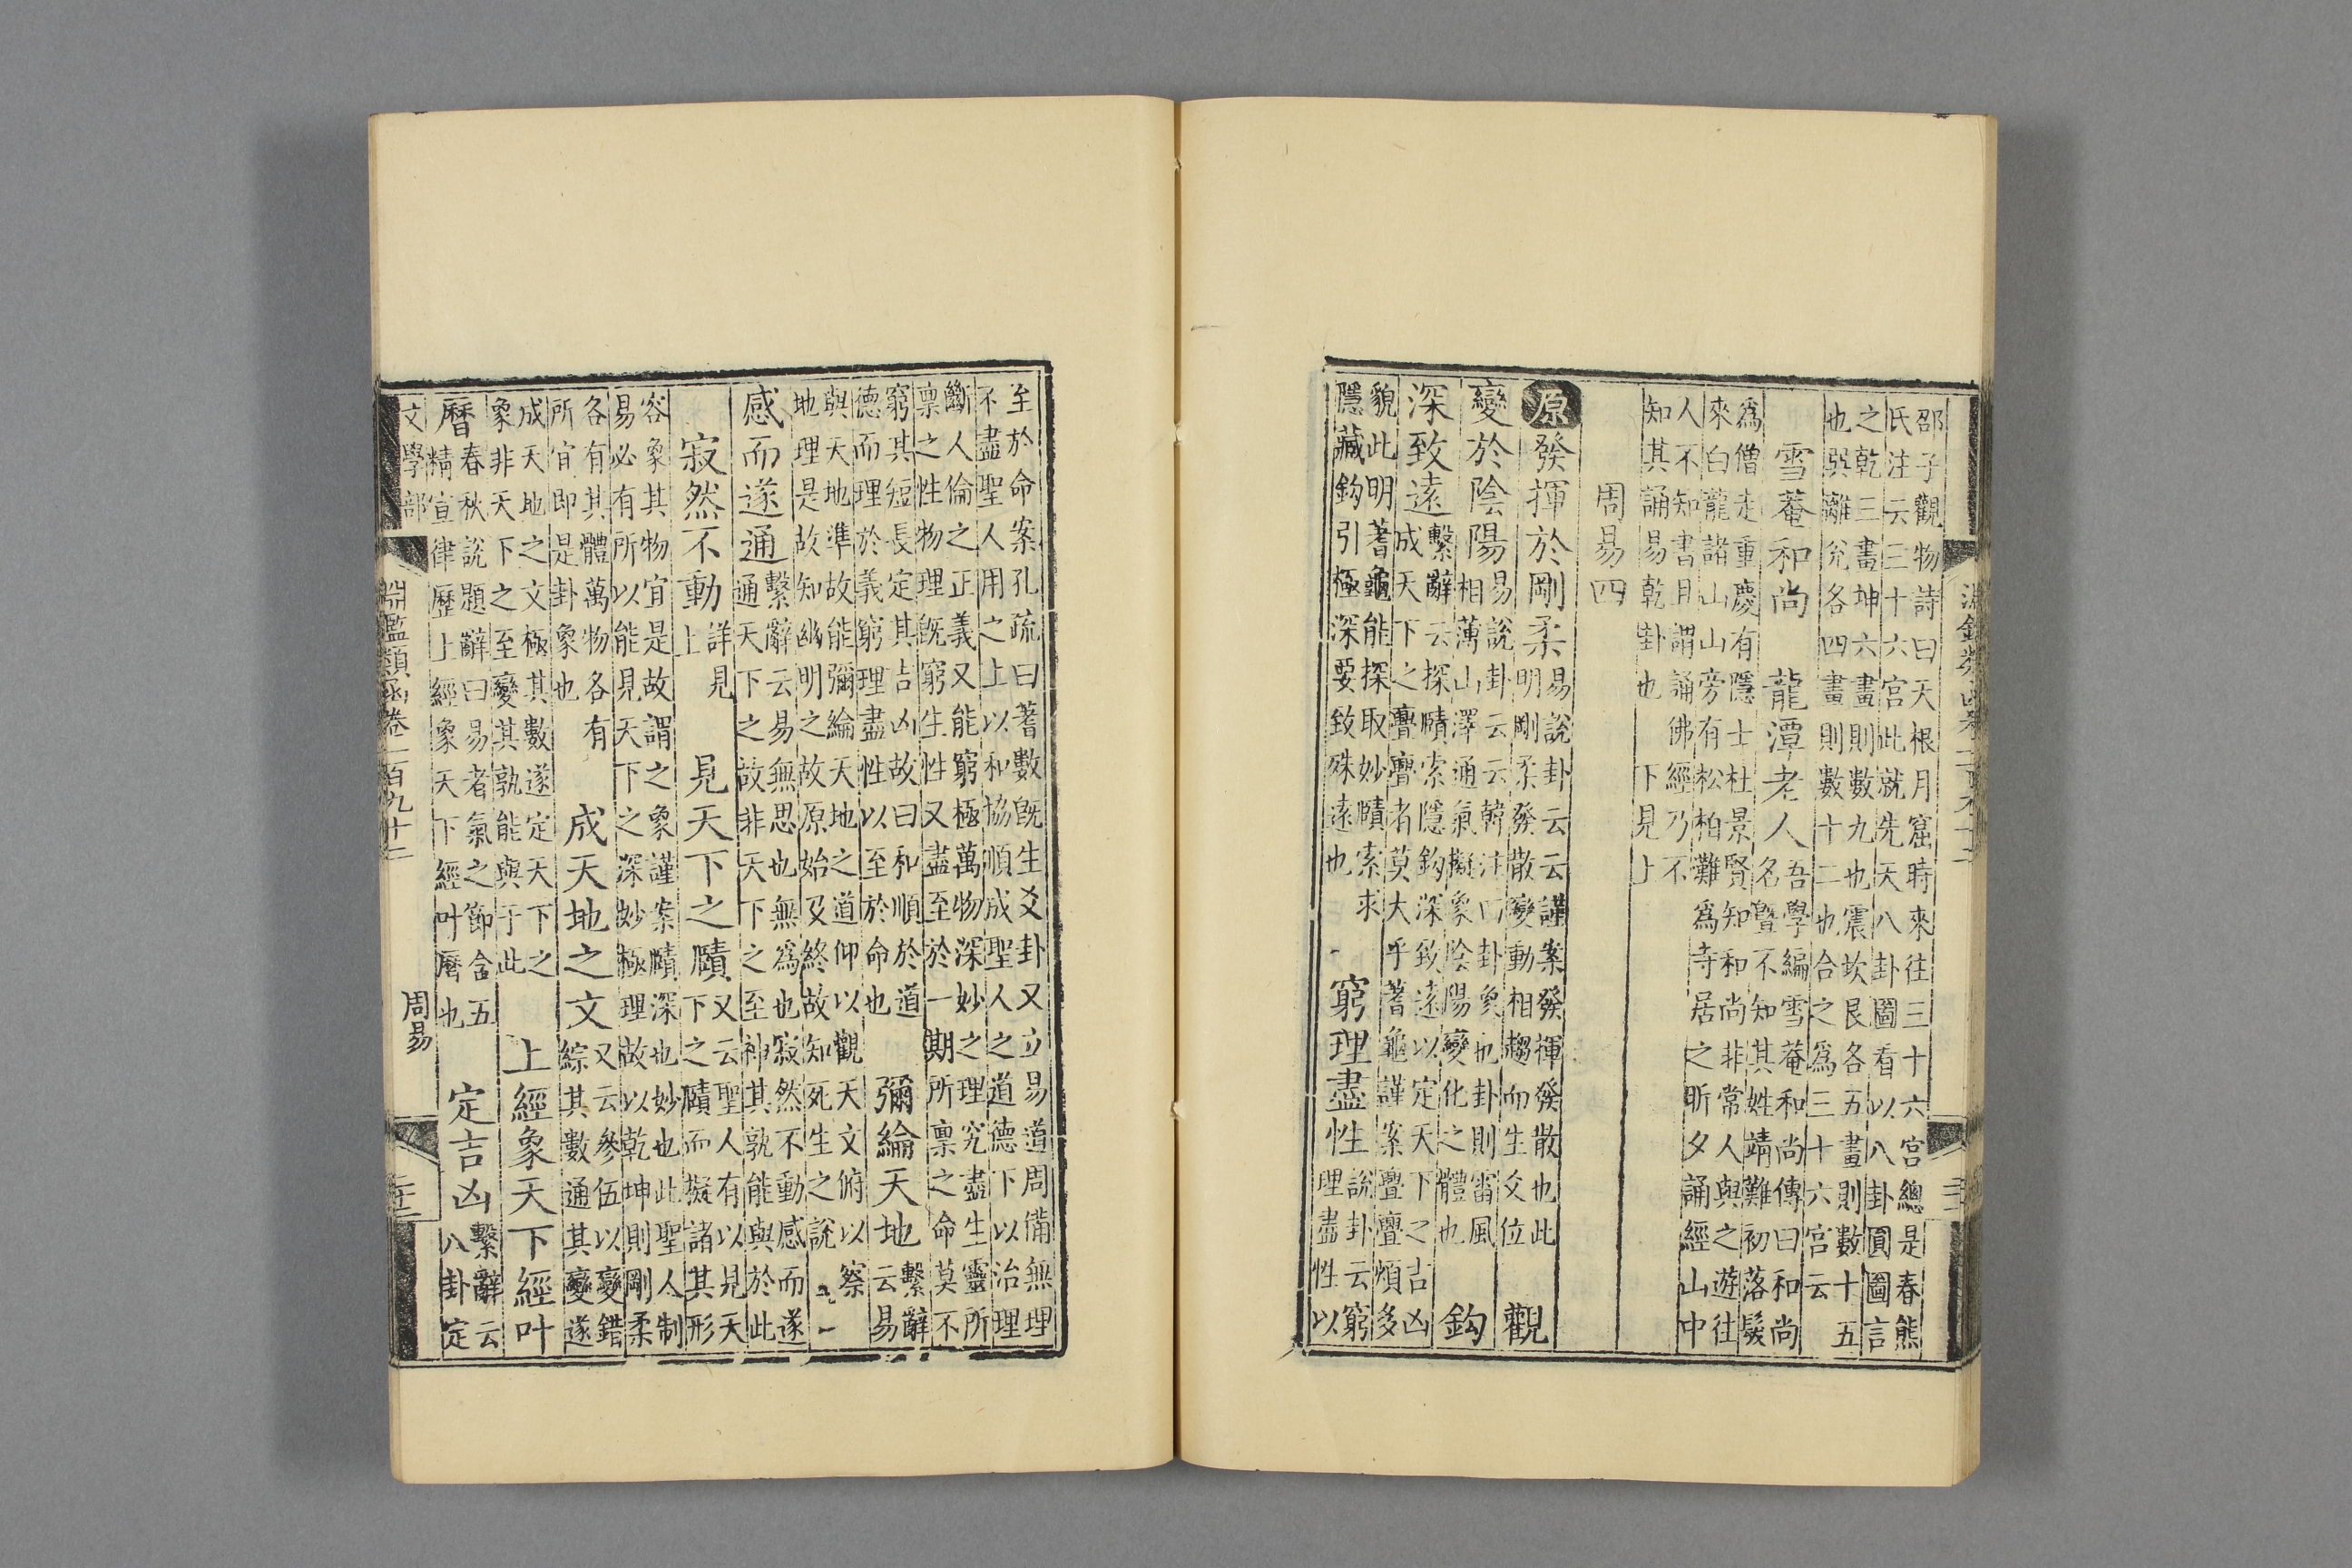 邵子觀物詩曰天根月窟時來往三十六宮總是春熊
氏注云三十六宮此就先天八卦圖看以八卦圓圖言
之乾三畫坤六畫則數九也震坎艮各五畫則數十五
也巽離兌各四畫則數十二也合之爲三十六宮云
雪菴和尚 龍潭老人
吾學編雪菴和尚傳曰和尚
名暨不知其姓靖難初落髮
爲僧走重慶有隱士杜景賢知和尚非常人與之遊往
來白龍諸山山旁有松柏灘爲寺居之昕夕誦經山中
人不知書日謂誦佛經乃不
知其誦易乾卦也 下見上
周易四
原發揮於剛柔
易說卦云云謹案發揮發散也此
明剛柔發散變動相趨而生爻位
觀
變於陰陽
易說卦云云韓注曰卦象也卦則雷風
相薄山澤通氣擬象陰陽變化之體也
鈎
深致遠
繫辭云探賾索隱鈎深致遠以定天下之吉凶
成天下之亹亹者莫大乎蓍龜謹案亹亹煩多
貌此明蓍龜能探取妙賾索求
隱藏鈎引極深要致殊遠也
窮理盡性
說卦云窮
理盡性以
至於命案孔疏曰蓍數旣生爻卦又立易道周備無理
不盡聖人用之上以和協順成聖人之道德下以治理
斷人倫之正義又能窮極萬物深妙之理究盡生靈所
稟之性物理旣窮生性又盡至於一期所稟之命莫不
窮其短長定其吉凶故曰和順於道
德而理於義窮理盡性以至於命也
彌綸天地
繫辭
云易
與天地準故能彌綸天地之道仰以觀天文俯以察
地理是故知幽明之故原始及終故知死生之說
感而遂通
繫辭云易無思也無爲也寂然不動感而遂
通天下之故非天下之至神其孰能與於此
寂然不動
詳見
上
見天下之賾
又云聖人有以見天
下之賾而擬諸其形
容象其物宜是故謂之象謹案賾深也妙也此聖人制
易必有所以能見天下之深妙極理故以乾坤則剛柔
各有其體萬物各有
所宜即是卦象也
成天地之文
又云參伍以變錯
綜其數通其變遂
成天地之文極其數遂定天下之
象非天下之至變其孰能與于此
上經象天下經叶
曆
春秋說題辭曰易者氣之節含五
精宣律歷上經象天下經叶曆也
定吉凶
繫辭云
八卦定
文學部
淵鑑類函卷一百九十二
周易